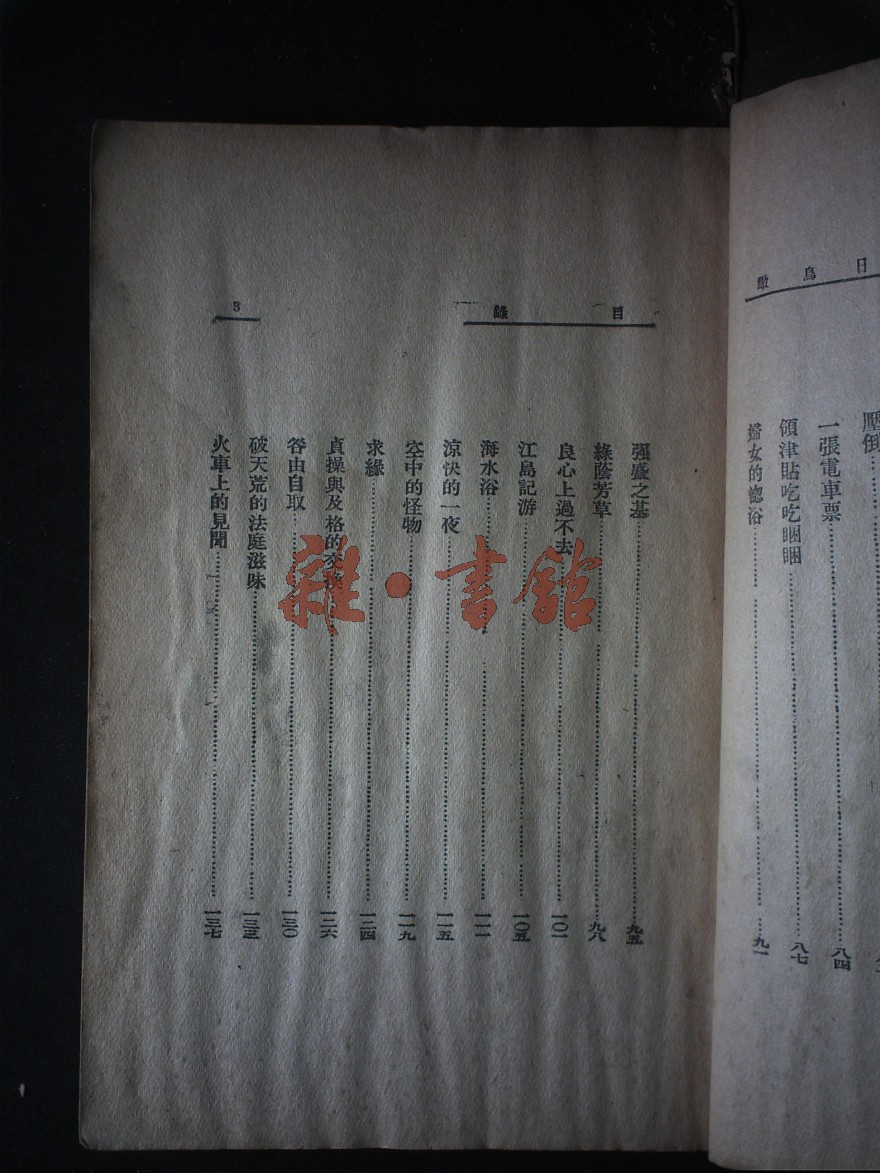 日鳥
壓倒
一張電車票……八四
領津貼吃吃睏睏……八七
婦女的鬆浴……九一
目錄
3
强盛之基……九五
綠蔭芳草……九八
良心上過不去……一〇一
江島記游……一〇五
海水浴……一一一
涼快的一夜……一一五
空中的怪物……一一九
求緣……一二四
貞操與及格的交換……一二六
咎由自取……一三〇
破天荒的法庭滋味……一三三
火車上的見聞……一三七
雜·書館